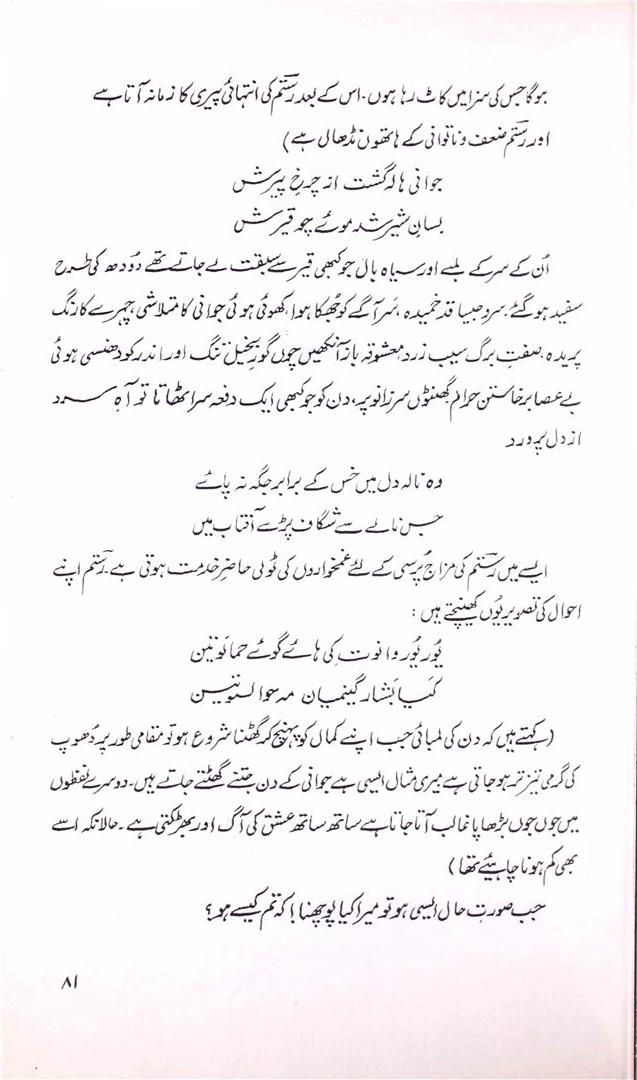 ہوگا جس کی سزا میں کاٹ رہا ہوں۔ اس کے بعد رستم کی انتہائی پیری کا زمانہ آتا ہے
اور رستم ضعف و ناتوانی کے ہاتھوں نڈھال ہے)
جوانی ہا لہ گشت از چرخِ پیرش
بسانِ شیر شد موئے چو قیرش
اُن کے سر کے لمبے اور سیاہ بال جو کبھی قیر سے سبقت لے جاتے تھے دودھ کی طرح
سفید ہو گئے۔ سرو جیسا قد خمیدہ، سَر آگے کو جُھکا ہوا، کھوئی ہوئی جوانی کا متلاشی، چہرے کا رنگ
پریدہ، صفتِ برگ سیب زرد، معشوقہ باز آنکھیں چوں گورِ بخیل تنگ اور اندر کو دھنسی ہوئی
بے عصا برخاستن حرام گھنٹوں سرزانو پر، دن کو جو کبھی ایک دفعہ سر اٹھاتا تو آہِ سرد
از دل پر درد
وہ نالہ دل میں خس کے برابر جگہ نہ پائے
جس نالے سے شگاف پڑے آفتاب میں
ایسے میں رستم کی مزاج پُرسی کے لئے غمخواروں کی ٹولی حاضر خدمت ہوتی ہے۔ رستم اپنے
احوال کی تصویر یُوں کھینچتے ہیں:
یُور یُور وانوت کی ہائے گوئے حمائونین
کَیا بَشار گینمیان مہ حوالوتین
(کہتے ہیں کہ دن کی لمبائی جب اپنے کمال کو پہنچ کر گھٹنا شروع ہو تو مقامی طور پر دُھوپ
کی گرمی تیز تر ہو جاتی ہے میری مثال ایسی ہے جوانی کے دن جتنے گھٹتے جاتے ہیں۔ دوسرے لفظوں
میں جوں جوں بڑھاپا غالب آتا جاتا ہے ساتھ ساتھ عشق کی آگ اور بھڑکتی ہے۔ حالانکہ اسے
بھی کم ہونا چاہیئے تھا)
جب صورتِ حال ایسی ہو تو میرا کیا پوچھنا! کہ تم کیسے ہو؟
۸۱